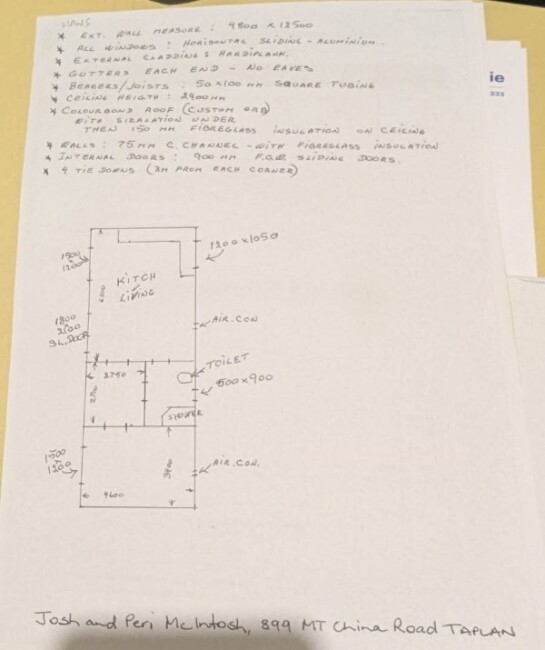 * EXT. WALL MEASURE : 4800 x 12500
* ALL WINDOWS : HORISONTAL SLIDING - ALUMINIUM.
* EXTERNAL CLADDING : HARDIPLANK.
* GUTTERS EACH END - NO EAVES
* BEARERS/JOISTS : 50x100 mm SQUARE TUBING
* CEILING HEIGTH : 2400mm
* COLOURBOND ROOF (CUSTOM ORB)
WITH SIZALATION UNDER
THEN 150 mm FIBREGLASS INSULATION ON CEILING
* WALLS : 75mm C. CHANNEL - WITH FIBREGLASS INSULATION
* INTERNAL DOORS : 900 mm SLIDING DOORS.
* 4 TIE DOWNS (3M FROM EACH CORNER)
ie
1200 x 1050
1500
1200
KITCH
LIVING
1800
2100
SL.DOOR
AIR.CON
TOILET
2750
600 x 900
SHOWER
1500
1200
AIR.CON.
4600
Josh and Peri McIntosh, 899 MT China Road TAPLAN